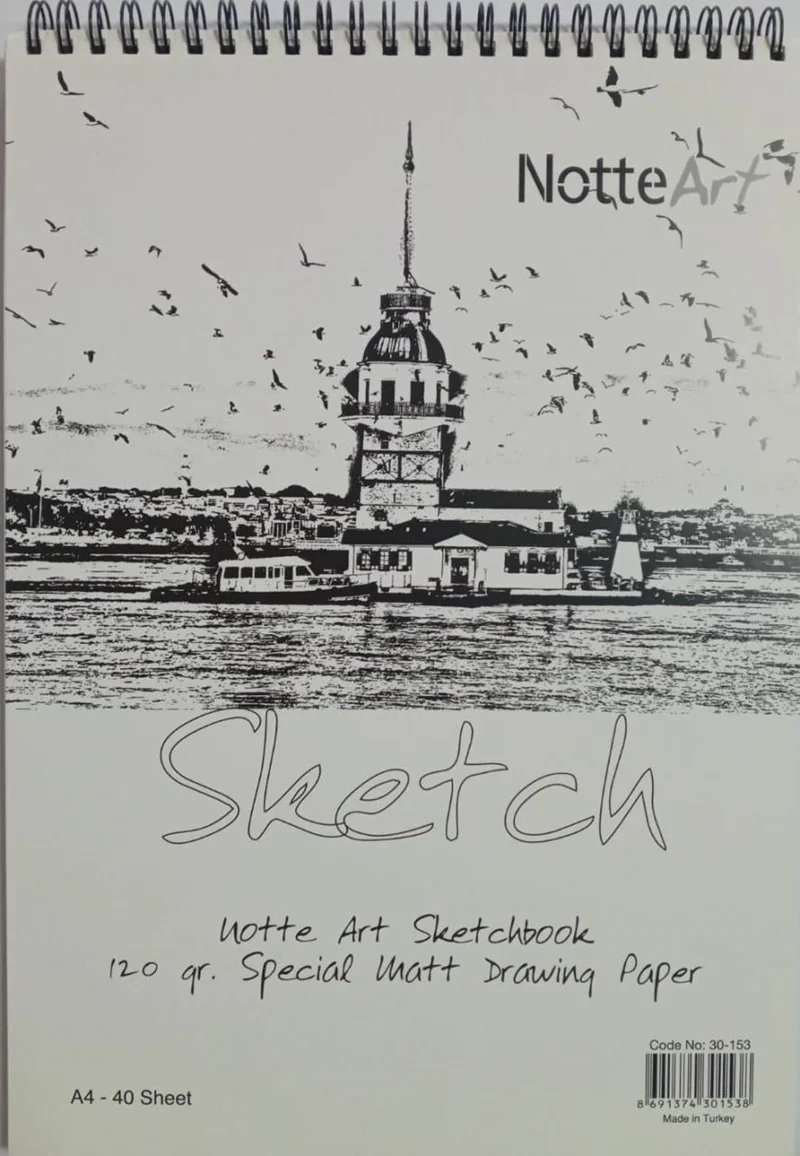 NotteArt
Sketch
Notte Art Sketchbook
120 gr. Special Matt Drawing Paper
Code No: 30-153
A4 - 40 Sheet
8 691374 301538
Made in Turkey